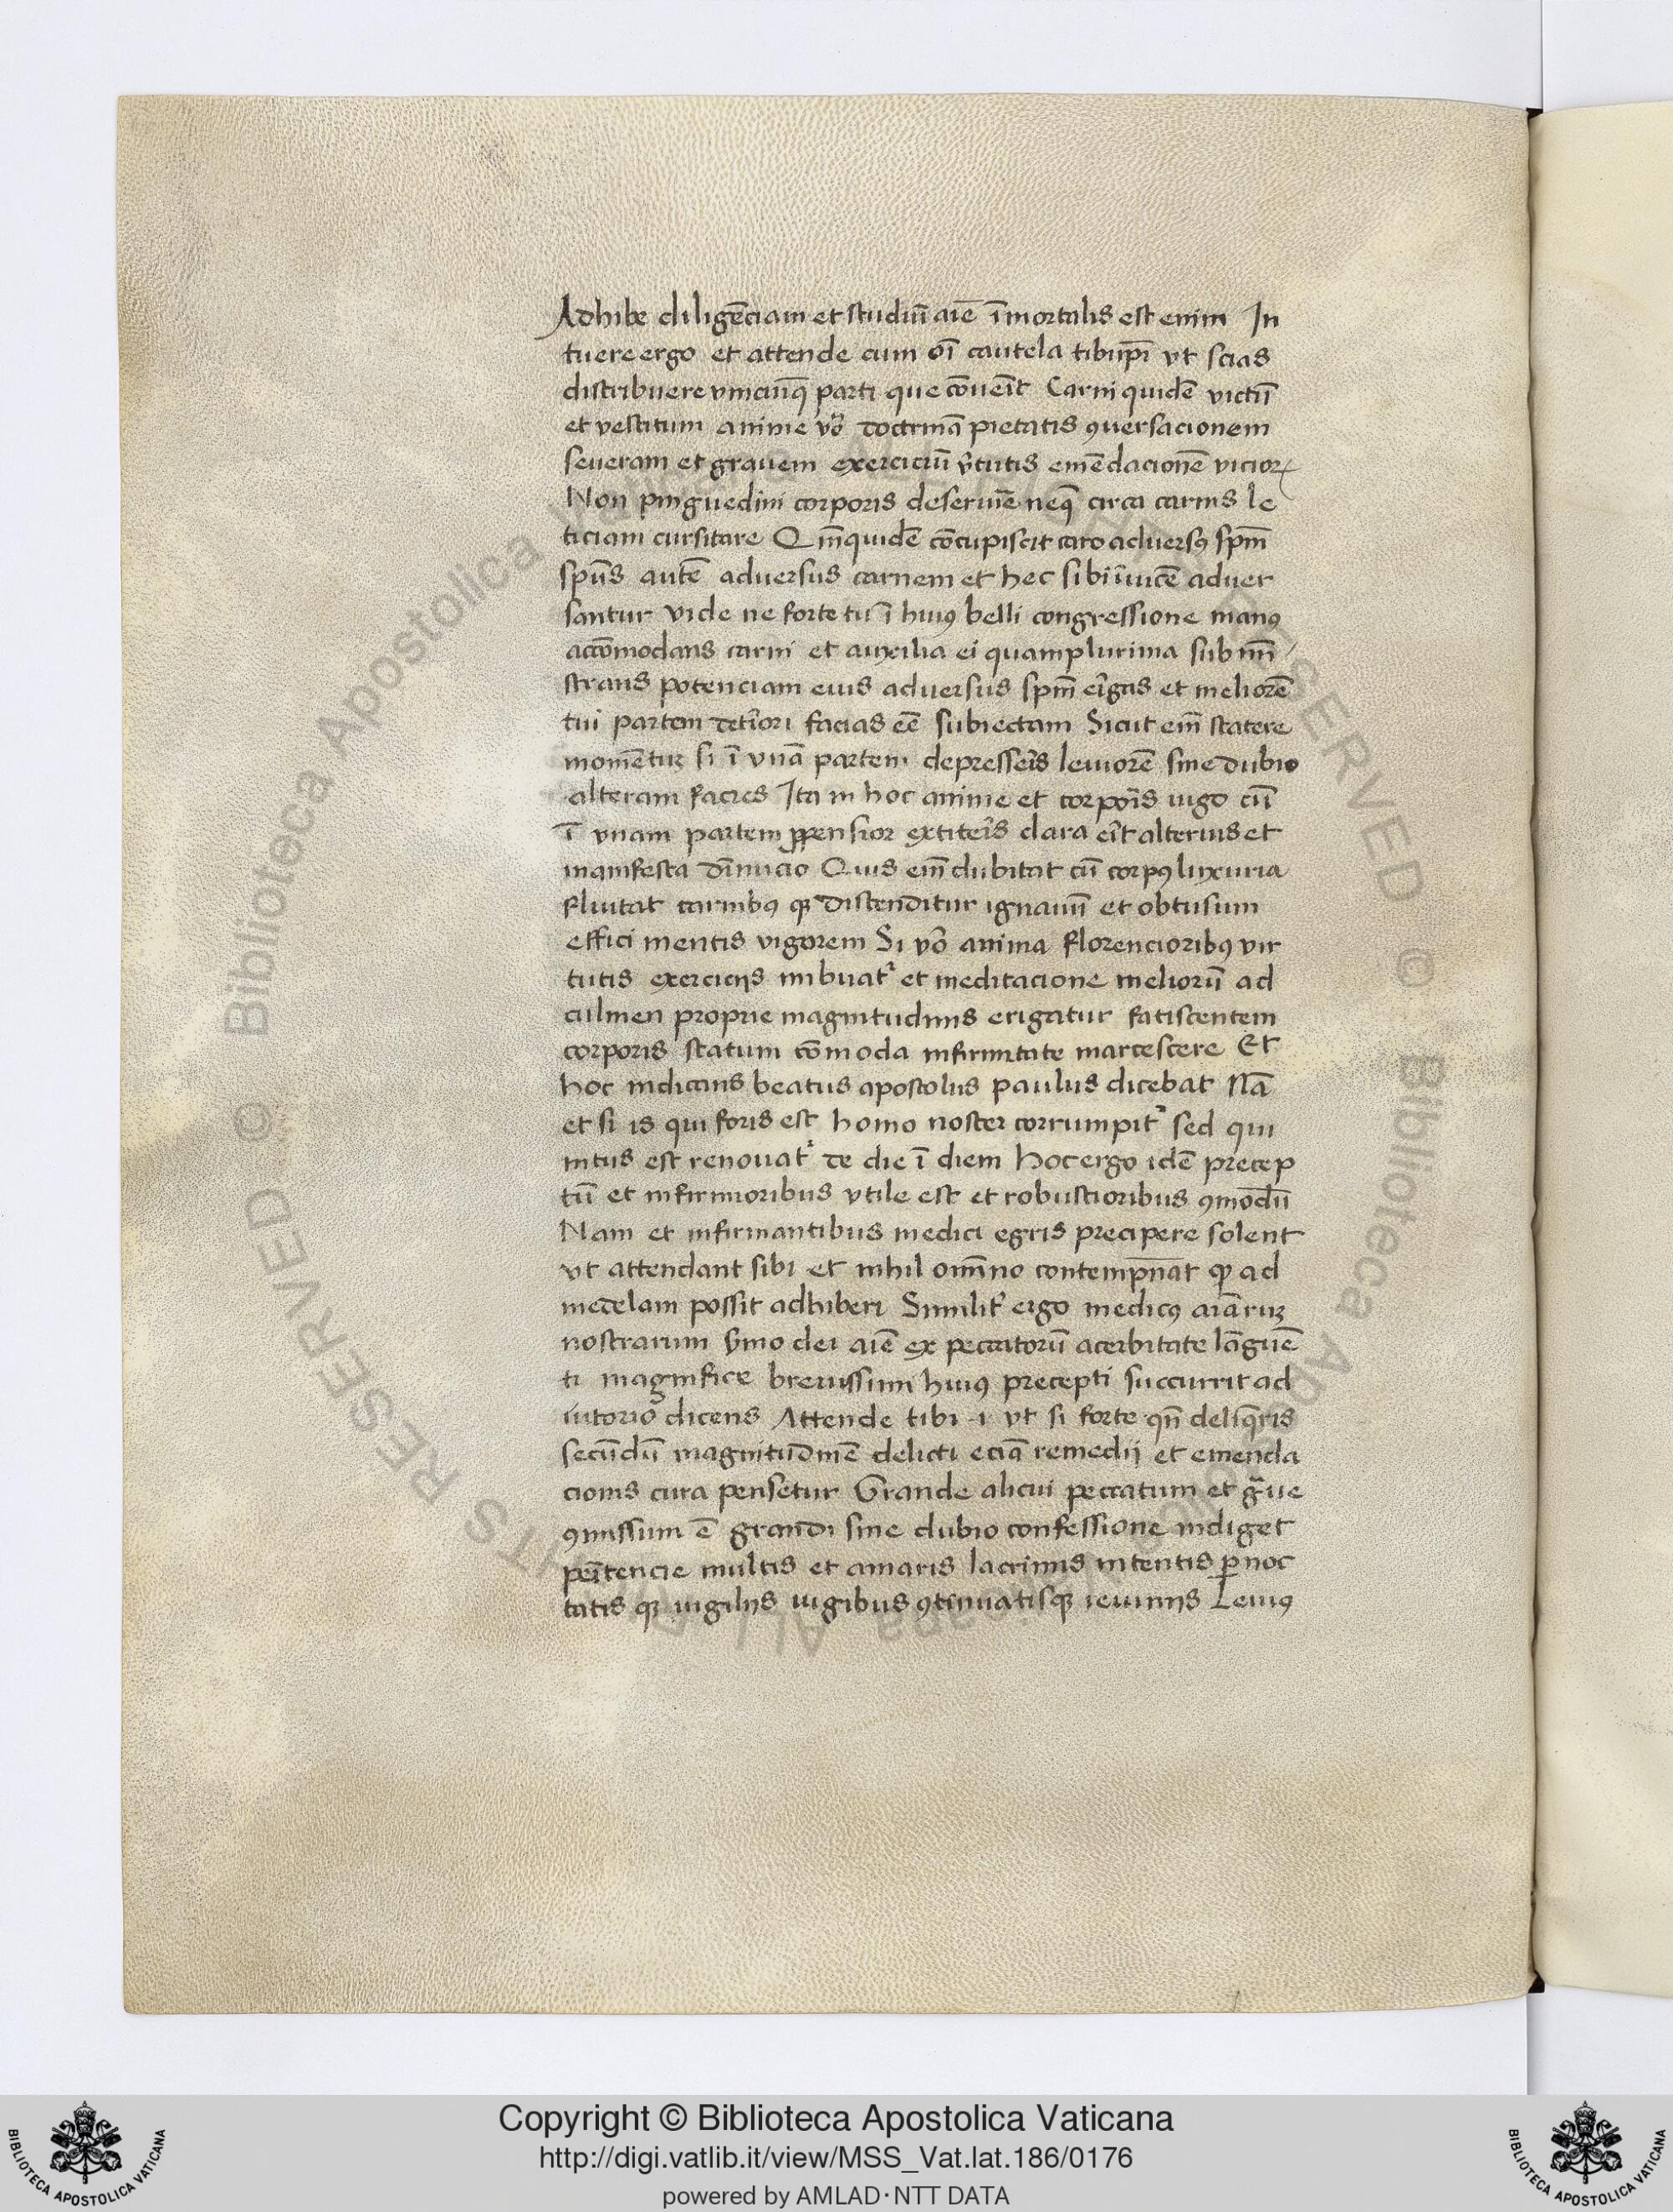 Adhibe diligẽciam et studiũ aĩe ĩmortalis est enim In
tuere ergo et attende cum oĩ cautela tibiip̃i vt scias
distribuere vnicuiq̃ parti que cõueĩt Carni quidẽ victũ
et vestitum anime ṽo doctrinã pietatis ꝯuersacionem
seueram et grauem exerciciũ ṽtutis emẽdacionẽ vicioꝝ
Non pinguedini corporis deseruiẽ neq̃ circa carnis le
ticiam cursitare Qm̃quidẽ cõcupiscit caro aduersꝰ spm̃
spũs autẽ aduersus carnem et hec sibi ĩuicẽ aduer
santur vide ne forte tu ĩ huiꝰ belli congressione manꝰ
accõmodans carni et auxilia ei quamplurima submĩ
strans potenciam eius aduersus spm̃ eĩgas et meliorẽ
tui partem det̃iori facias eẽ subiectam Sicut em̃ statere
momẽtuꝫ si ĩ vnã partem depresseĩs leuiorẽ sine dubio
alteram facies Ita in hoc anime et corpoĩs iugo cũ
ĩ vnam partem ꝓpensior extiteĩs clara eĩt alterius et
manifesta dĩnucio Quis em̃ dubitat cũ corpꝰ luxuria
fluitat carnibꝰ qꝫ distenditur ignauũ et obtusum
effici mentis vigorem Si ṽo anima florencioribꝰ vir
tutis exercicijs inbuat᷑ et meditacione meliorũ ad
culmen proprie magnitudinis erigatur fatiscentem
corporis statum cõmoda infirmitate marcescere Et
hoc indicans beatus apostolus paulus dicebat Nã
et si is qui foris est homo noster corrumpit᷑ sed qui
intus est renouat᷑ de die ĩ diem Hoc ergo idẽ precep
tũ et infirmioribus vtile est et robustioribus ꝯmodũ
Nam et infirmantibus medici egris precipere solent
vt attendant sibi et nihil om̃ino contempnãt qꝫ ad
medelam possit adhiberi Similit᷑ ergo medicꝰ aĩaruꝫ
nostrarum ṽmo dei aĩe ex peccatorũ acerbitate lãguẽ
ti magnifice breuissimi huiꝰ precepti succurrit ad
iutorio dicens Attende tibi .i. vt si forte qñ deliq̃ris
secũdũ magnitudinẽ delicti eciã remedij et emenda
cionis cura pensetur Grande alicui peccatum et g̃ue
ꝯmissum ẽ grandi sine dubio confessione indiget
peĩtencie multis et amaris lacrimis intentis ꝑnoc
tatis qꝫ uigilijs iugibus ꝯtinuatisqꝫ ieiunijs Leuiꝰ
Copyright © Biblioteca Apostolica Vaticana
http://digi.vatlib.it/view/MSS_Vat.lat.186/0176
powered by AMLAD·NTT DATA